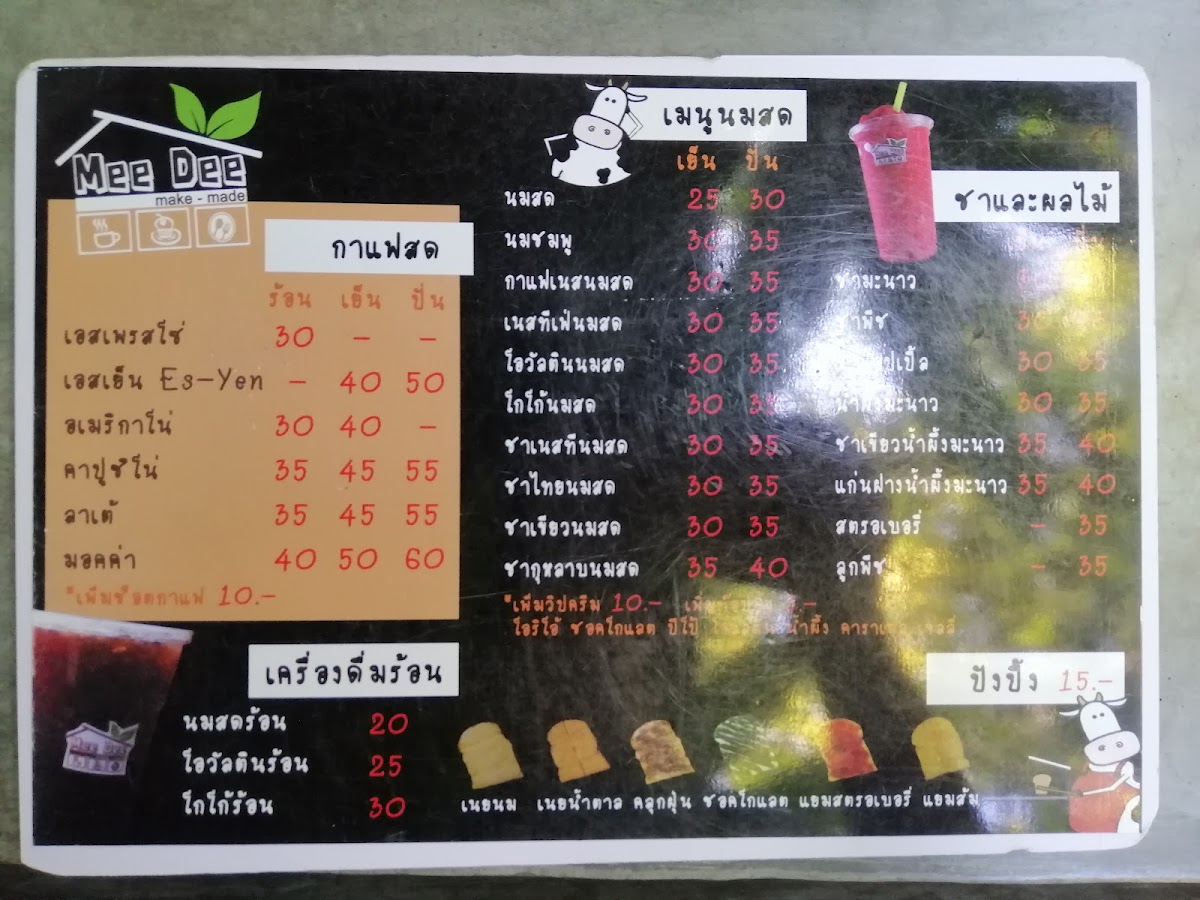 Mee Dee
make-made
กาแฟสด
ร้อน เย็น ปั่น
เอสเพรสโซ่ 30 - -
เอสเย็น Es-Yen - 40 50
อเมริกาโน่ 30 40 -
คาปูชิโน่ 35 45 55
ลาเต้ 35 45 55
มอคค่า 40 50 60
*เพิ่มช๊อตกาแฟ 10.-
เครื่องดื่มร้อน
นมสดร้อน 20
โอวัลตินร้อน 25
โกโก้ร้อน 30
เมนูนมสด
เย็น ปั่น
นมสด 25 30
นมชมพู 30 35
กาแฟเนสนมสด 30 35
เนสทีเฟ่นมสด 30 35
โอวัลตินนมสด 30 35
โกโก้นมสด 30 35
ชาเนสทีนมสด 30 35
ชาไทยนมสด 30 35
ชาเขียวนมสด 30 35
ชากุหลาบนมสด 35 40
*เพิ่มวิปครีม 10.-
โอริโอ้ ช็อคโกแลต ปีโป้ น้ำผึ้ง
ชาและผลไม้
ชามะนาว
ชาพีช 30
30 35
น้ำผึ้งมะนาว 30 35
ชาเขียวน้ำผึ้งมะนาว 35 40
แก่นฝางน้ำผึ้งมะนาว 35 40
สตรอเบอรี่ - 35
ลูกพีช - 35
ปังปิ้ง 15.-
เนยนม เนยน้ำตาล คลุกฝุ่น ชอคโกแลต แยมสตรอเบอรี่ แยมส้ม